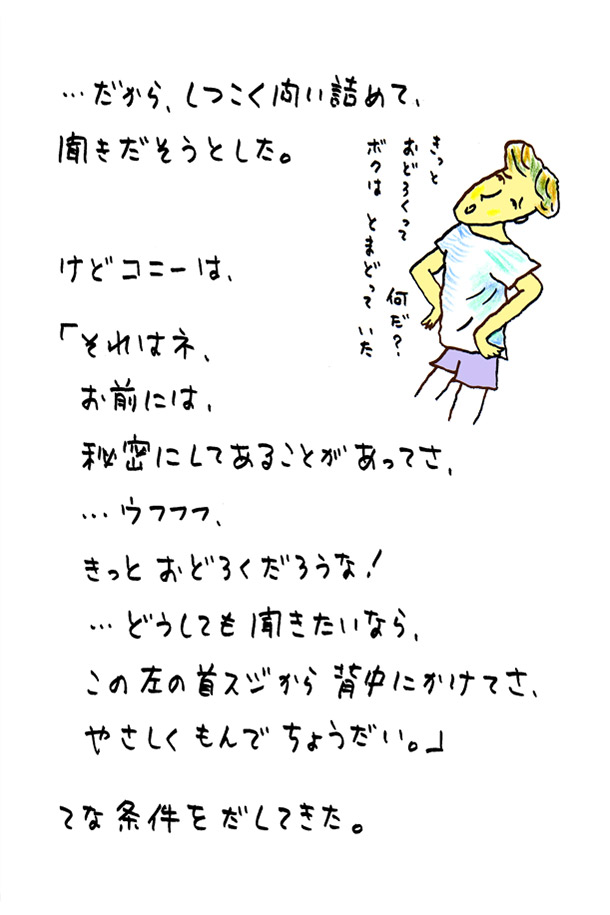 …だから、しつこく問い詰めて、
聞きだそうとした。
きっと
おどろくって
何だ？
ボクは とまどって いた
けどコニーは、
「それはネ、
お前には、
秘密にしてあることがあってさ、
…ウフフフ、
きっと おどろくだろうな！
…どうしても 聞きたいなら、
この左の首スジから 背中にかけてさ、
やさしく もんで ちょうだい。」
てな条件をだしてきた。